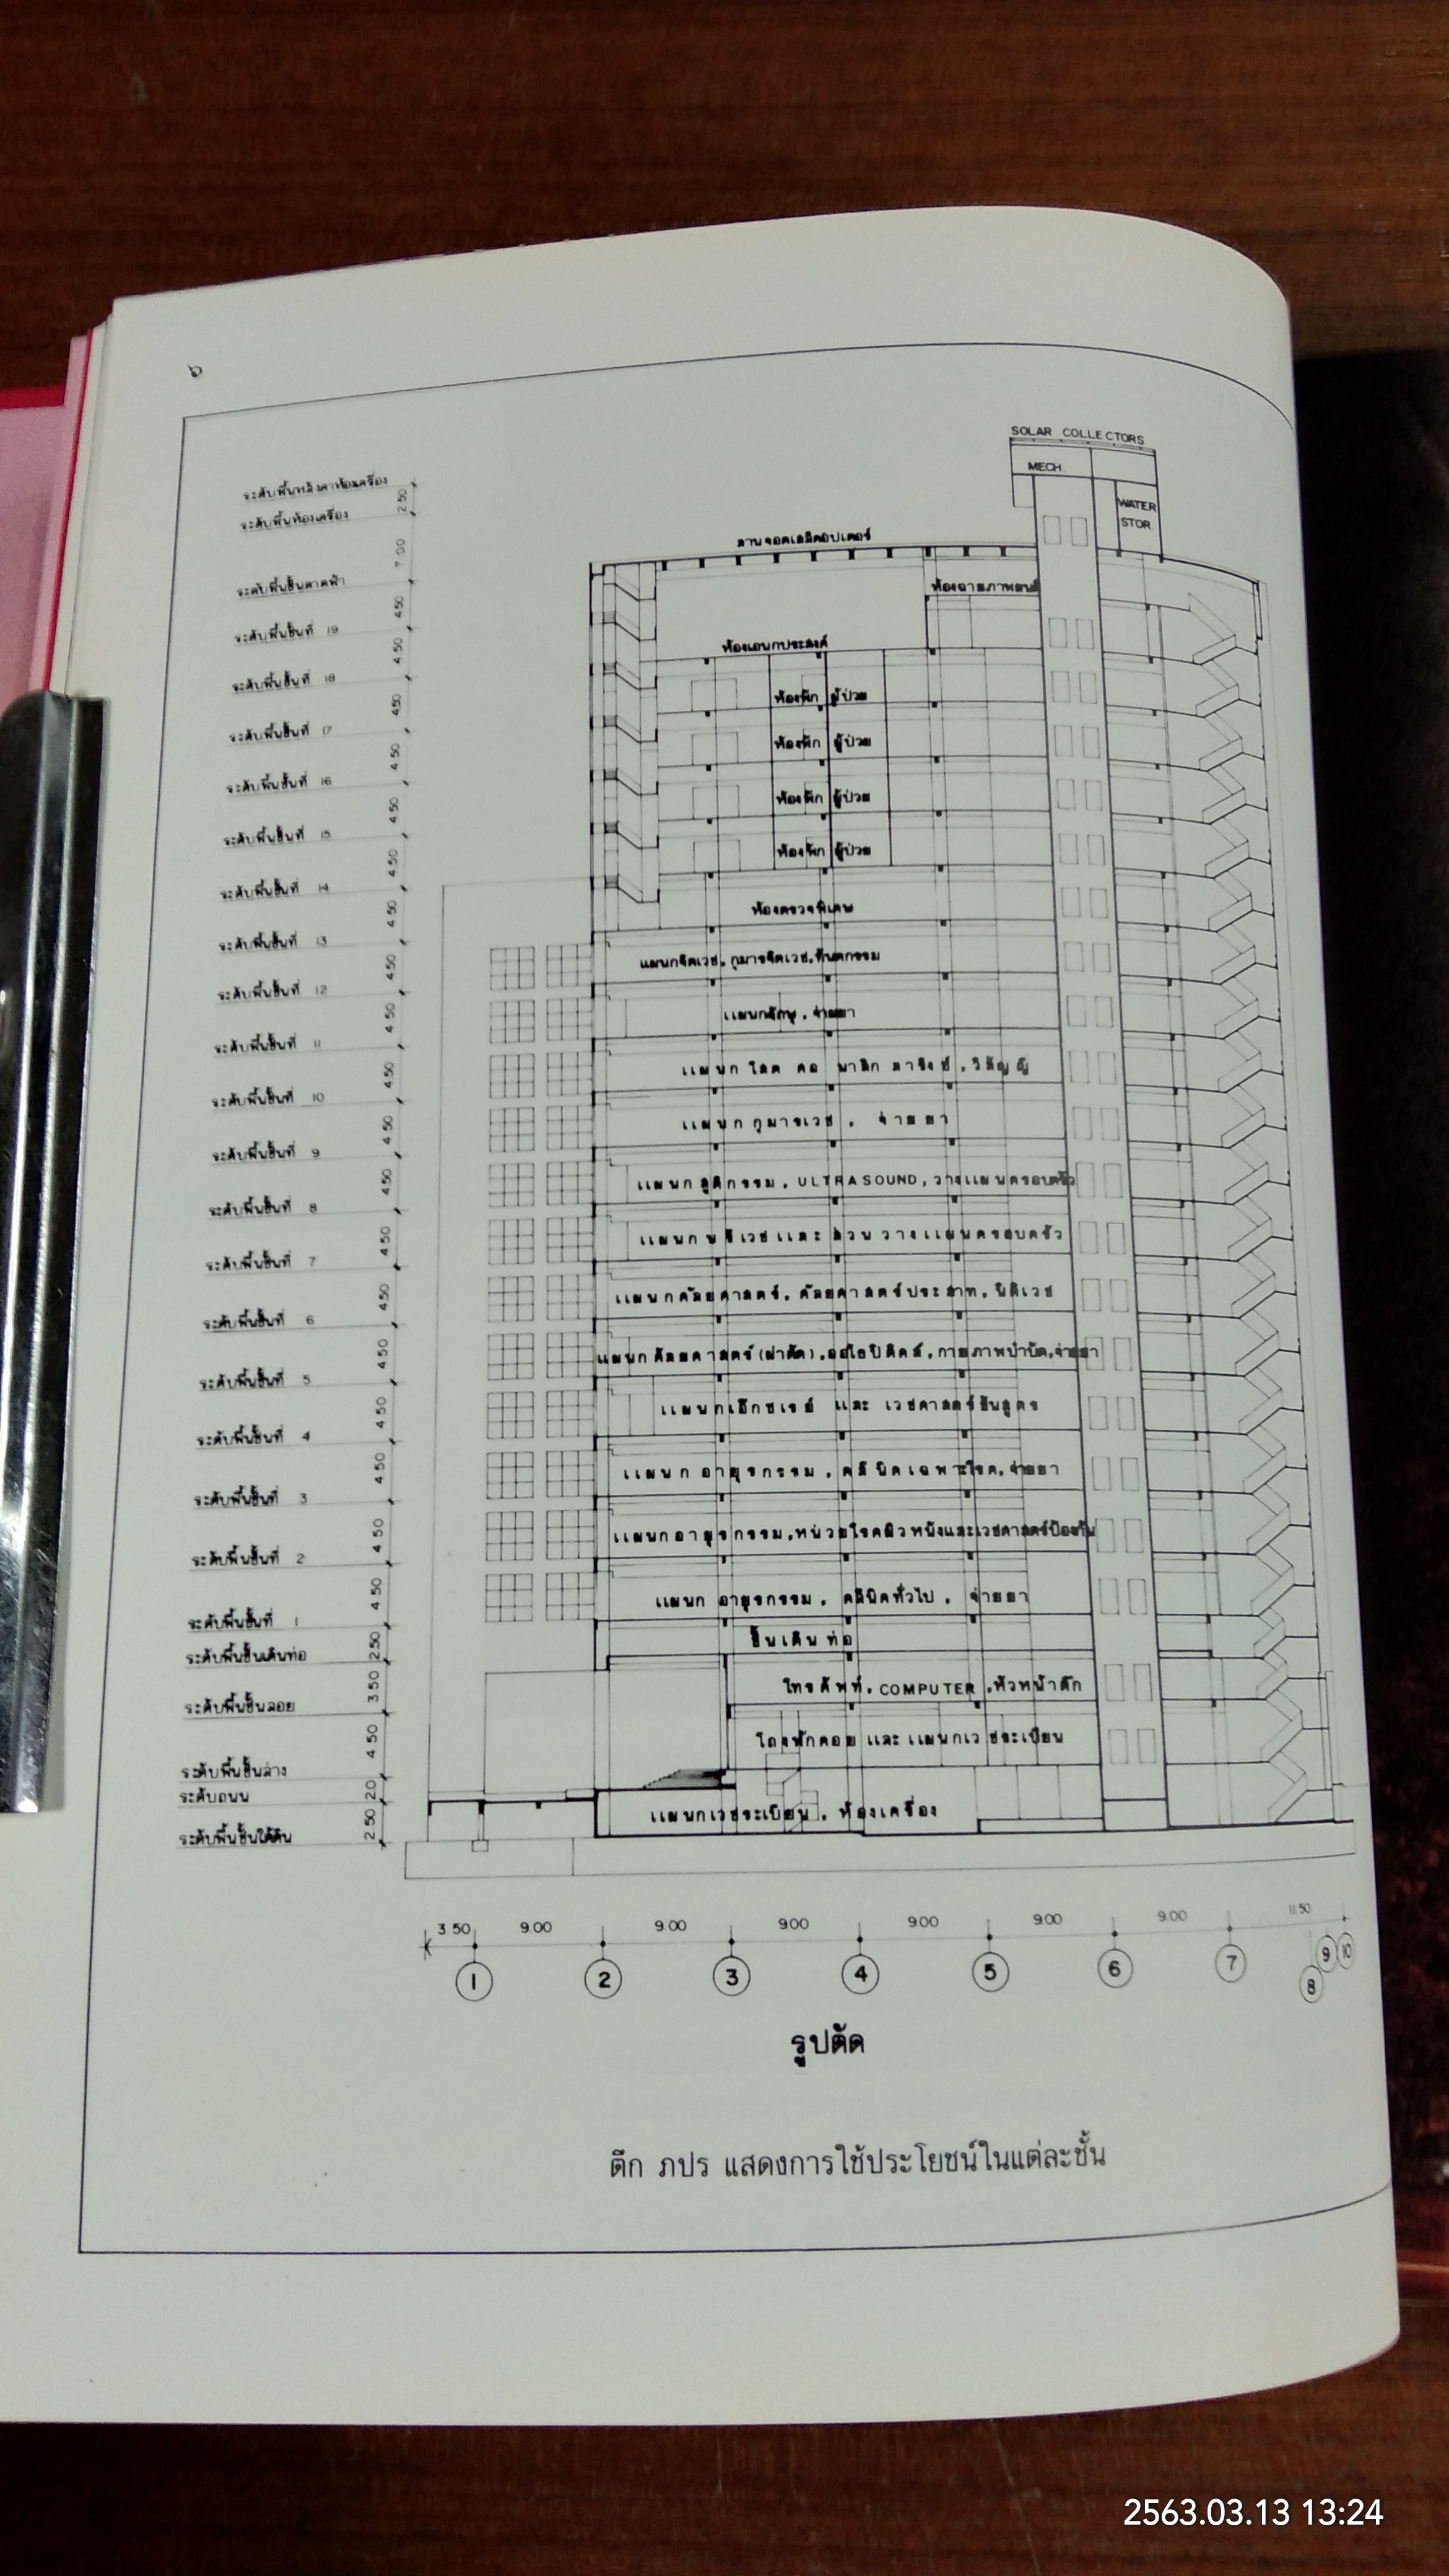 ๖
SOLAR COLLECTORS
MECH.
WATER
STOR.
ระดับพื้นหลังคาห้องเครื่อง
2.50
ระดับพื้นห้องเครื่อง
7.00
ลานจอดเฮลิคอปเตอร์
ระดับพื้นชั้นดาดฟ้า
ห้องฉายภาพยนต์
4.50
ระดับพื้นชั้นที่ 19
ห้องเอนกประสงค์
4.50
ระดับพื้นชั้นที่ 18
ห้องพักผู้ป่วย
4.50
ระดับพื้นชั้นที่ 17
ห้องพักผู้ป่วย
4.50
ระดับพื้นชั้นที่ 16
ห้องพักผู้ป่วย
4.50
ระดับพื้นชั้นที่ 15
ห้องพักผู้ป่วย
4.50
ระดับพื้นชั้นที่ 14
ห้องตรวจพิเศษ
4.50
ระดับพื้นชั้นที่ 13
แผนกจิตเวช, กุมารจิตเวช, ทันตกรรม
4.50
ระดับพื้นชั้นที่ 12
แผนกจักษุ, จ่ายยา
4.50
ระดับพื้นชั้นที่ 11
แผนก โสต ศอ นาสิก ลาริงซ์, วิสัญญี
4.50
ระดับพื้นชั้นที่ 10
แผนกกุมารเวช, จ่ายยา
4.50
ระดับพื้นชั้นที่ 9
แผนกสูติกรรม, ULTRASOUND, วางแผนครอบครัว
4.50
ระดับพื้นชั้นที่ 8
แผนกนรีเวชและส่วนวางแผนครอบครัว
4.50
ระดับพื้นชั้นที่ 7
แผนกศัลยศาสตร์, ศัลยศาสตร์ประสาท, นิติเวช
4.50
ระดับพื้นชั้นที่ 6
แผนกศัลยศาสตร์ (ผ่าตัด), ออโธปิดิคส์, กายภาพบำบัด, จ่ายยา
4.50
ระดับพื้นชั้นที่ 5
แผนกเอ็กซเรย์ และ เวชศาสตร์ชันสูตร
4.50
ระดับพื้นชั้นที่ 4
แผนกอายุรกรรม, คลีนิคเฉพาะโรค, จ่ายยา
4.50
ระดับพื้นชั้นที่ 3
แผนกอายุรกรรม, หน่วยโรคผิวหนังและเวชศาสตร์ป้องกัน
4.50
ระดับพื้นชั้นที่ 2
แผนก อายุรกรรม, คลีนิคทั่วไป, จ่ายยา
4.50
ระดับพื้นชั้นที่ 1
ชั้นเดินท่อ
2.50
ระดับพื้นชั้นเดินท่อ
โทรศัพท์, COMPUTER, หัวหน้าตึก
3.50
ระดับพื้นชั้นลอย
โถงพักคอย และ แผนกเวชระเบียน
4.50
ระดับพื้นชั้นล่าง
2.0
ระดับถนน
แผนกเวชระเบียน, ห้องเครื่อง
2.50
ระดับพื้นชั้นใต้ดิน
3.50 9.00 9.00 9.00 9.00 9.00 9.00 11.50
1 2 3 4 5 6 7 8 9 10
รูปตัด
ตึก ภปร แสดงการใช้ประโยชน์ในแต่ละชั้น
2563.03.13 13:24